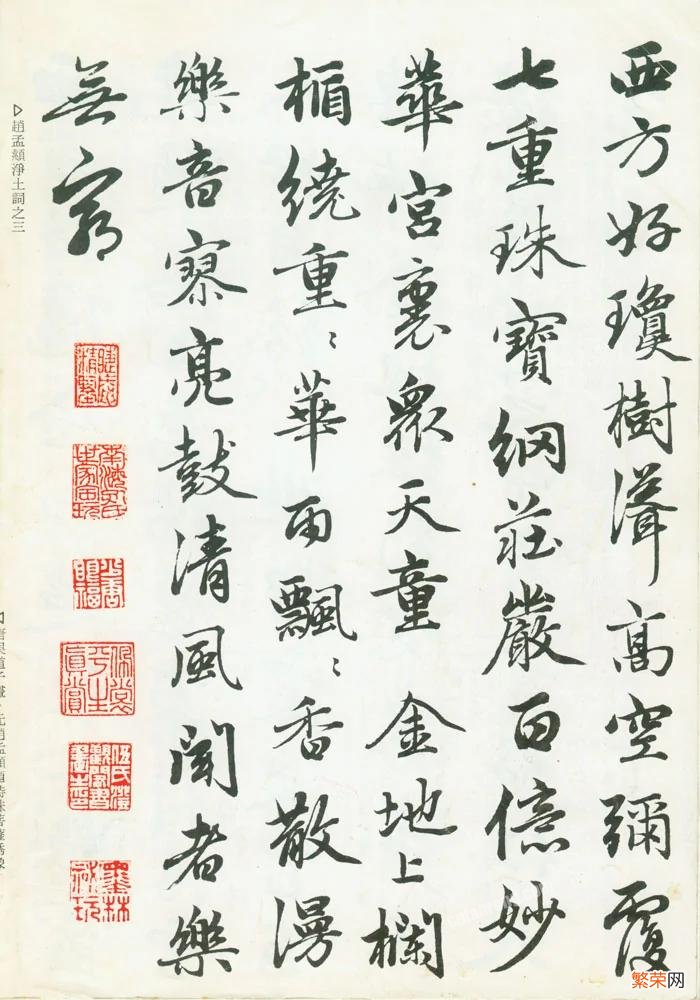 西方好瓊樹聳高空彌覆
七重珠寶網莊嚴百億妙
華宮裏眾天童金地上欄
楯繞重〻華雨飄〻香散漫
樂音寥亮鼓清風聞者樂
無窮
墨林秘玩
▷趙孟頫淨土詞之三
繁荣网